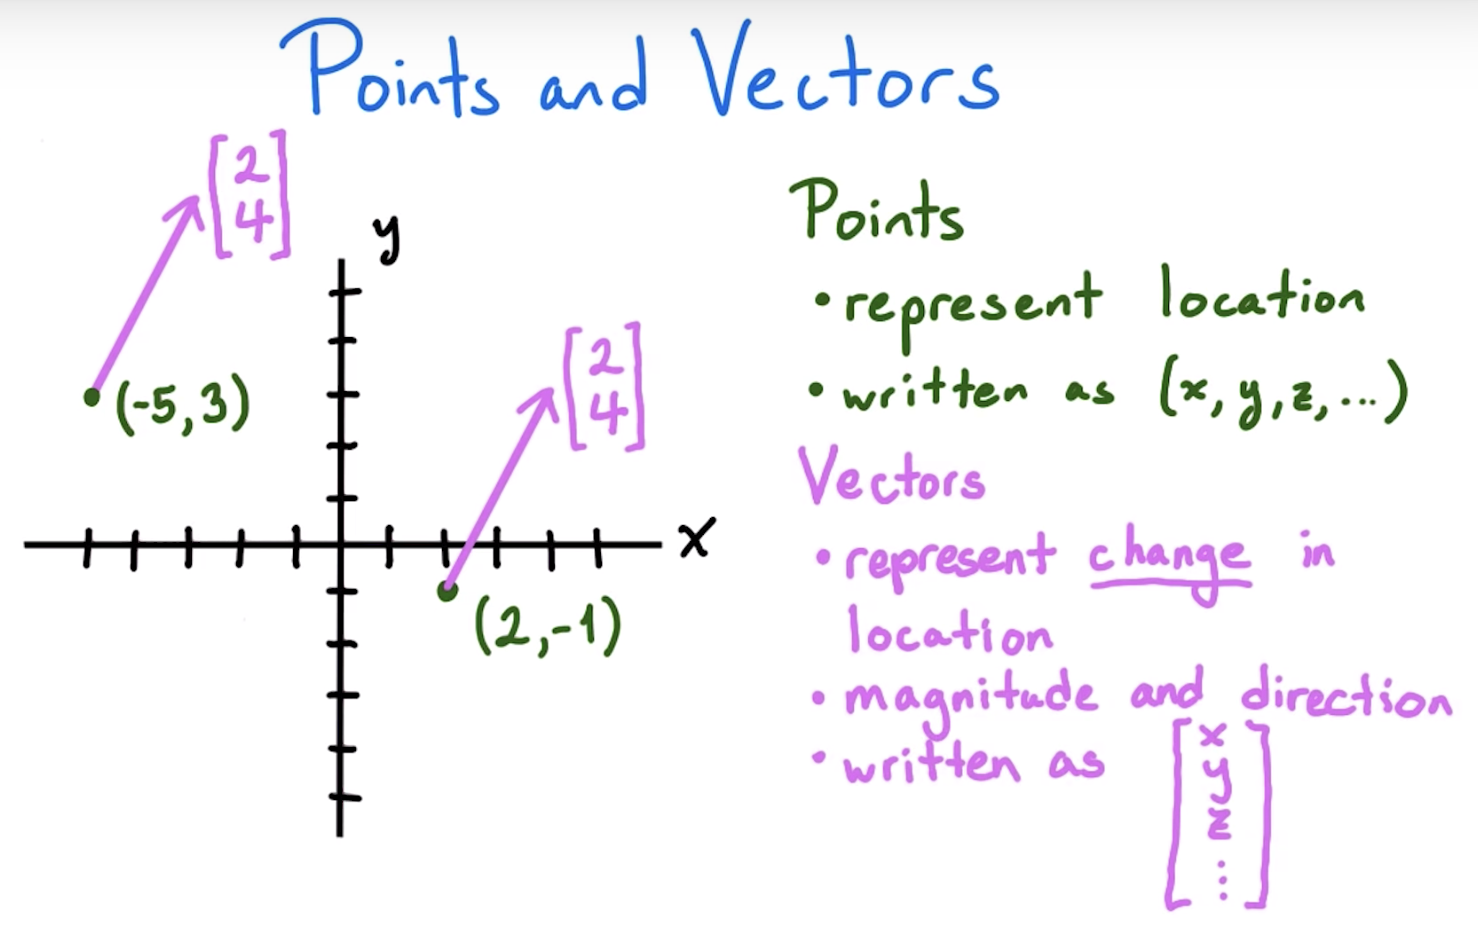 Points and Vectors
[2
4]
y
(-5,3)
[2
4]
x
(2,-1)
Points
• represent location
• written as (x, y, z, ...)
Vectors
• represent change in
location
• magnitude and direction
• written as [x
y
z
⋮]